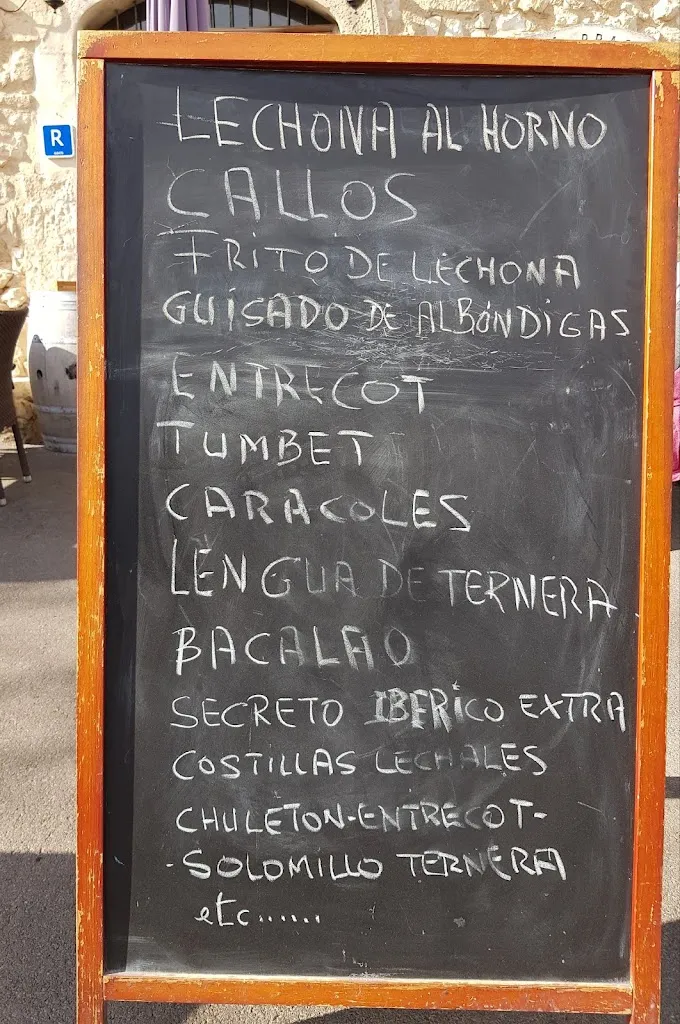 R
LECHONA AL HORNO
CALLOS
FRITO DE LECHONA
GUISADO DE ALBÓNDIGAS
ENTRECOT
TUMBET
CARACOLES
LENGUA DE TERNERA
BACALAO
SECRETO IBERICO EXTRA
COSTILLAS LECHALES
CHULETON-ENTRECOT-
-SOLOMILLO TERNERA
etc......